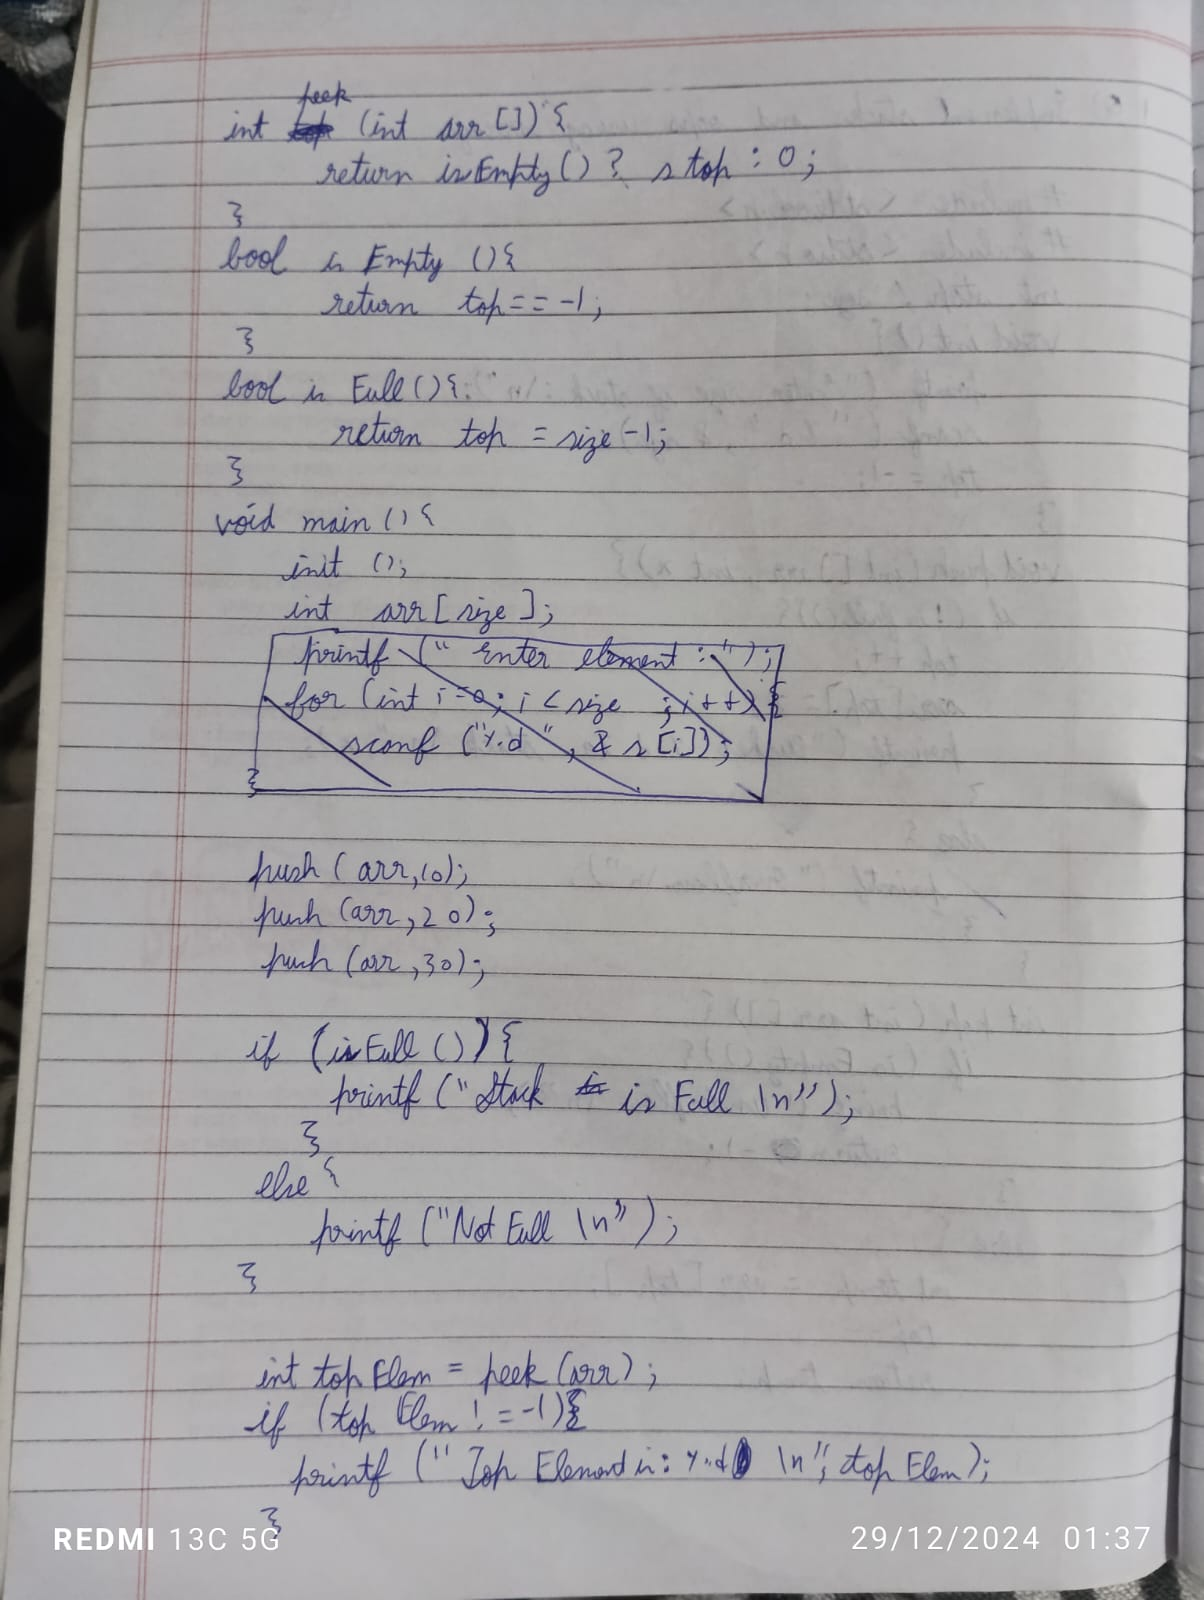 peek
int top (int arr []) {
return isEmpty () ? stop : 0;
}
bool is Empty () {
return top == -1;
}
bool is Full () {
return top = size -1;
}
void main () {
init ();
int arr [ size ];
printf (" Enter element : ");
for (int i=0; i < size ; i++) {
scanf ("%d", & s [i]);
}
push ( arr, 10);
push (arr, 20);
push (arr, 30);
if (is Full ()) {
printf (" Stack is Full \n");
}
else {
printf ("Not Full \n");
}
int top Elem = peek (arr);
if (top Elem != -1) {
printf (" Top Element is: %d \n", top Elem);
}
REDMI 13C 5G
29/12/2024 01:37